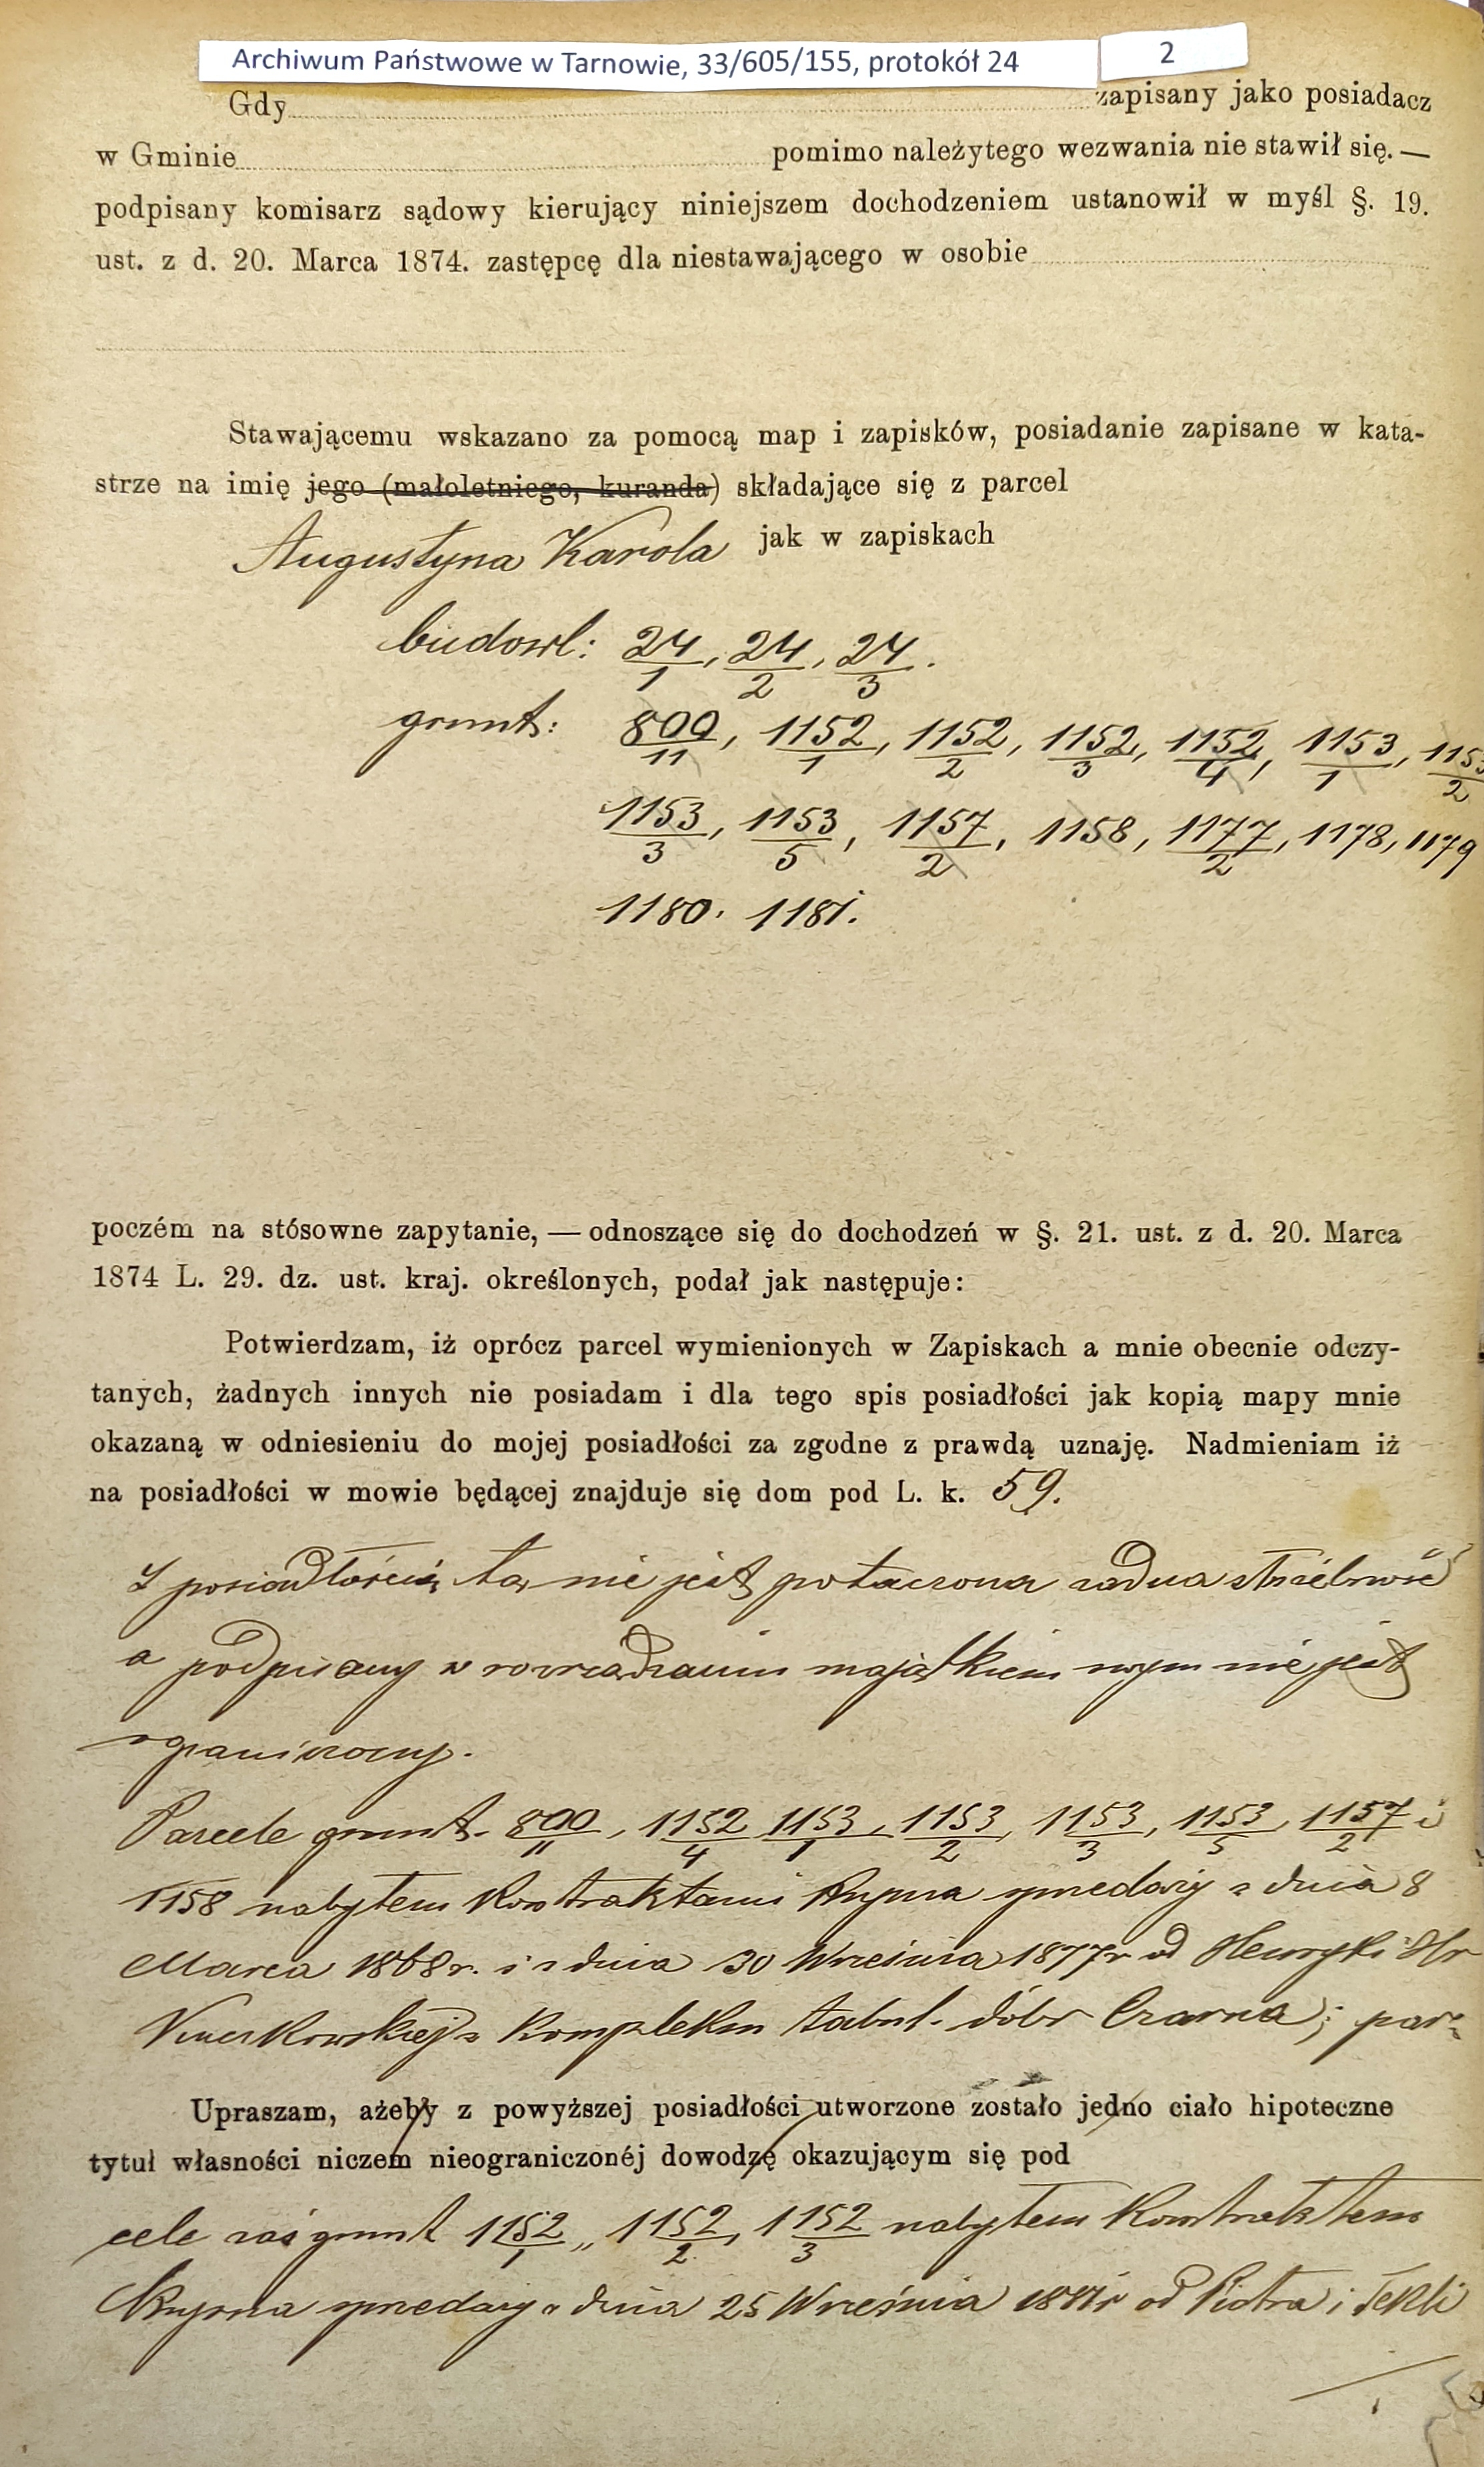 Archiwum Państwowe w Tarnowie, 33/605/155, protokół 24
2
Gdy zapisany jako posiadacz
w Gminie pomimo należytego wezwania nie stawił się. —
podpisany komisarz sądowy kierujący niniejszem dochodzeniem ustanowił w myśl §. 19.
ust. z d. 20. Marca 1874. zastępcę dla niestawającego w osobie
Stawającemu wskazano za pomocą map i zapisków, posiadanie zapisane w kata-
strze na imię jego (małoletniego, kuranda) składające się z parcel
Augustyna Karola jak w zapiskach
budowl: 24/1, 24/2, 24/3.
grunt: 800/11, 1152/1, 1152/2, 1152/3, 1152/4, 1153/1, 1153/2
1153/3, 1153/5, 1157/2, 1158, 1177/2, 1178, 1179
1180. 1181.
poczém na stósowne zapytanie, — odnoszące się do dochodzeń w §. 21. ust. z d. 20. Marca
1874 L. 29. dz. ust. kraj. określonych, podał jak następuje:
Potwierdzam, iż oprócz parcel wymienionych w Zapiskach a mnie obecnie odczy-
tanych, żadnych innych nie posiadam i dla tego spis posiadłości jak kopią mapy mnie
okazaną w odniesieniu do mojej posiadłości za zgodne z prawdą uznaję. Nadmieniam iż
na posiadłości w mowie będącej znajduje się dom pod L. k. 59.
Z posiadłością tą nie jest połączona żadna służebność
a podpisany w rozrządzaniu majątkiem swym nie jest
ograniczony.
Parcele grunt. 800/11, 1152/4 1153/1, 1153/2, 1153/3, 1153/5, 1157/2 i
1158 nabyłem kontraktami kupna sprzedaży z dnia 8
Marca 1868 r. i z dnia 30 Września 1877 r od Henryki Hr
z kompleksu tabul. dóbr Czarna; par-
Upraszam, ażeby z powyższej posiadłości utworzone zostało jedno ciało hipoteczne
tytuł własności niczem nieograniczonéj dowodzę okazującym się pod
cele zaś grunt 1152/1, 1152/2, 1152/3 nabyłem kontraktem
kupna sprzedaży z dnia 25 Września od Piotra i Tekli